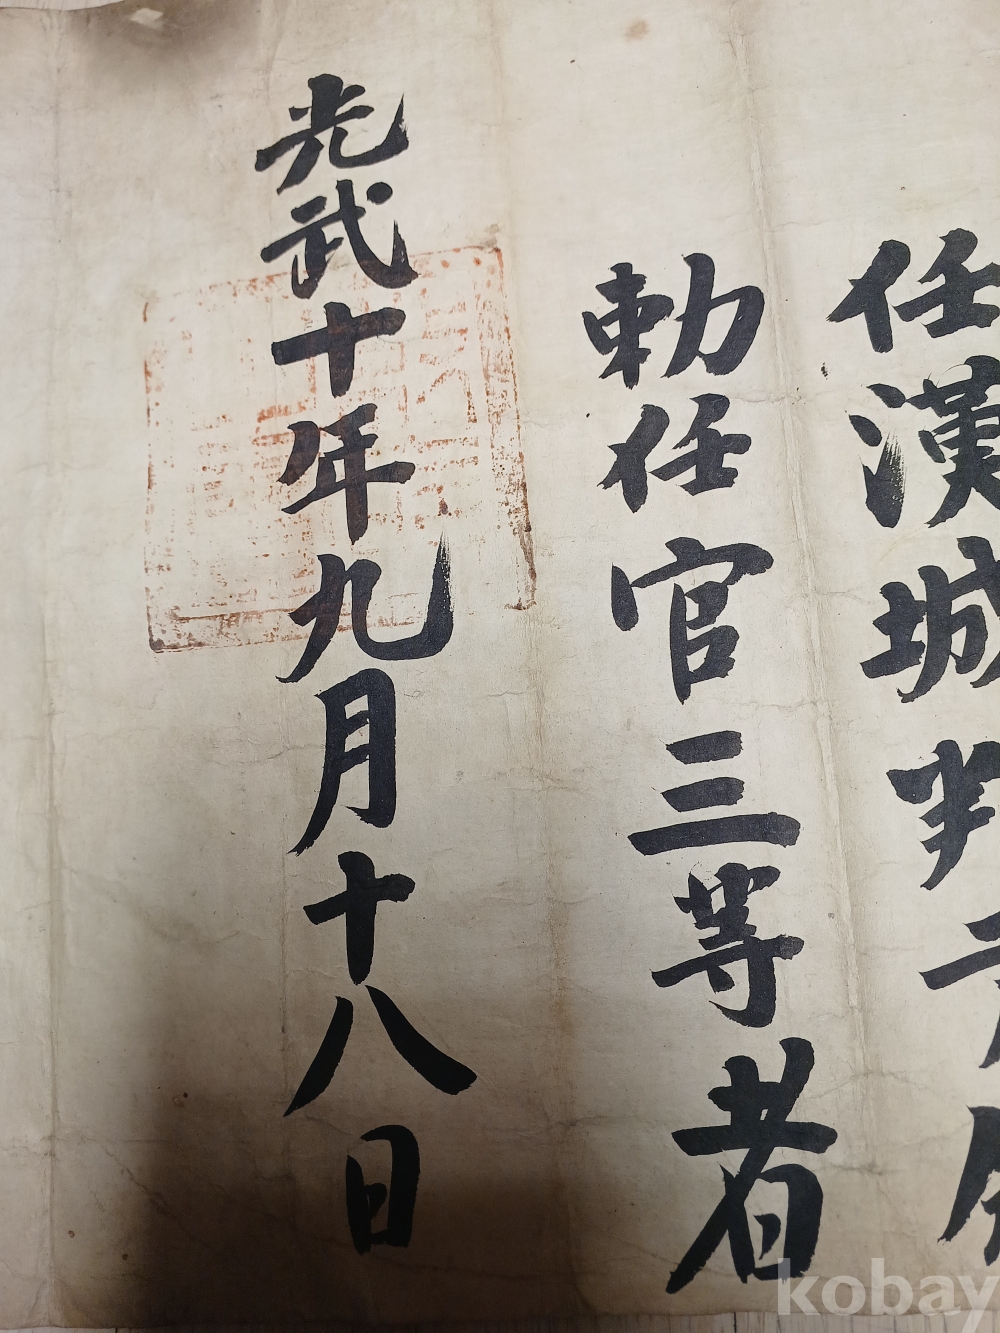 任漢城判尹
勅任官三等者
光武十年九月十八日
kobay